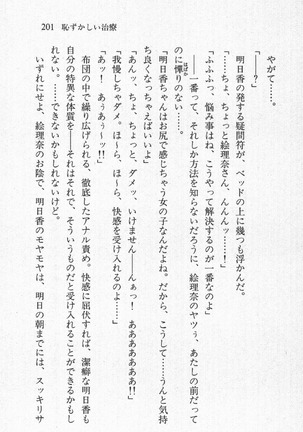 201 恥ずかしい治療
やがて……。
「――？」
明日香の発する疑問符が、ベッドの上に幾つも浮かんだ。
「……ちょ、ちょっと絵理奈さん、んんんッ……！」
「ふふふっ、悩み事はね、こうやって解決するのが一番なのよ」
――一番って、それしか方法を知らないだろうに、絵理奈のヤツぅ、あたしの前だって
のに憚りのない……。
「明日香ちゃんはお尻で感じちゃう女の子なんだよね。だから、こうして……うんと気持
ち良くなっちゃえばいいよ」
「あんっ、ちょ、ちょっと、ダメッ、いけませ――んぁっ！　あああああ！」
「我慢しちゃダメ。ほ～ら、ほ～ら、快感を受け入れるのよ……」
「あッ！　あぁあぁ～ッ!!」
布団の中で繰り広げられる、徹底したアナル責め。快感に屈伏すれば、潔癖な明日香も
自分の特異な体質を――それはそれで、そういうものだと受け入れることができるかもし
れない。……できないかもしれないけど。
いずれにせよ、絵理奈のお陰で、明日香のモヤモヤは、明日の朝までには、スッキリサ